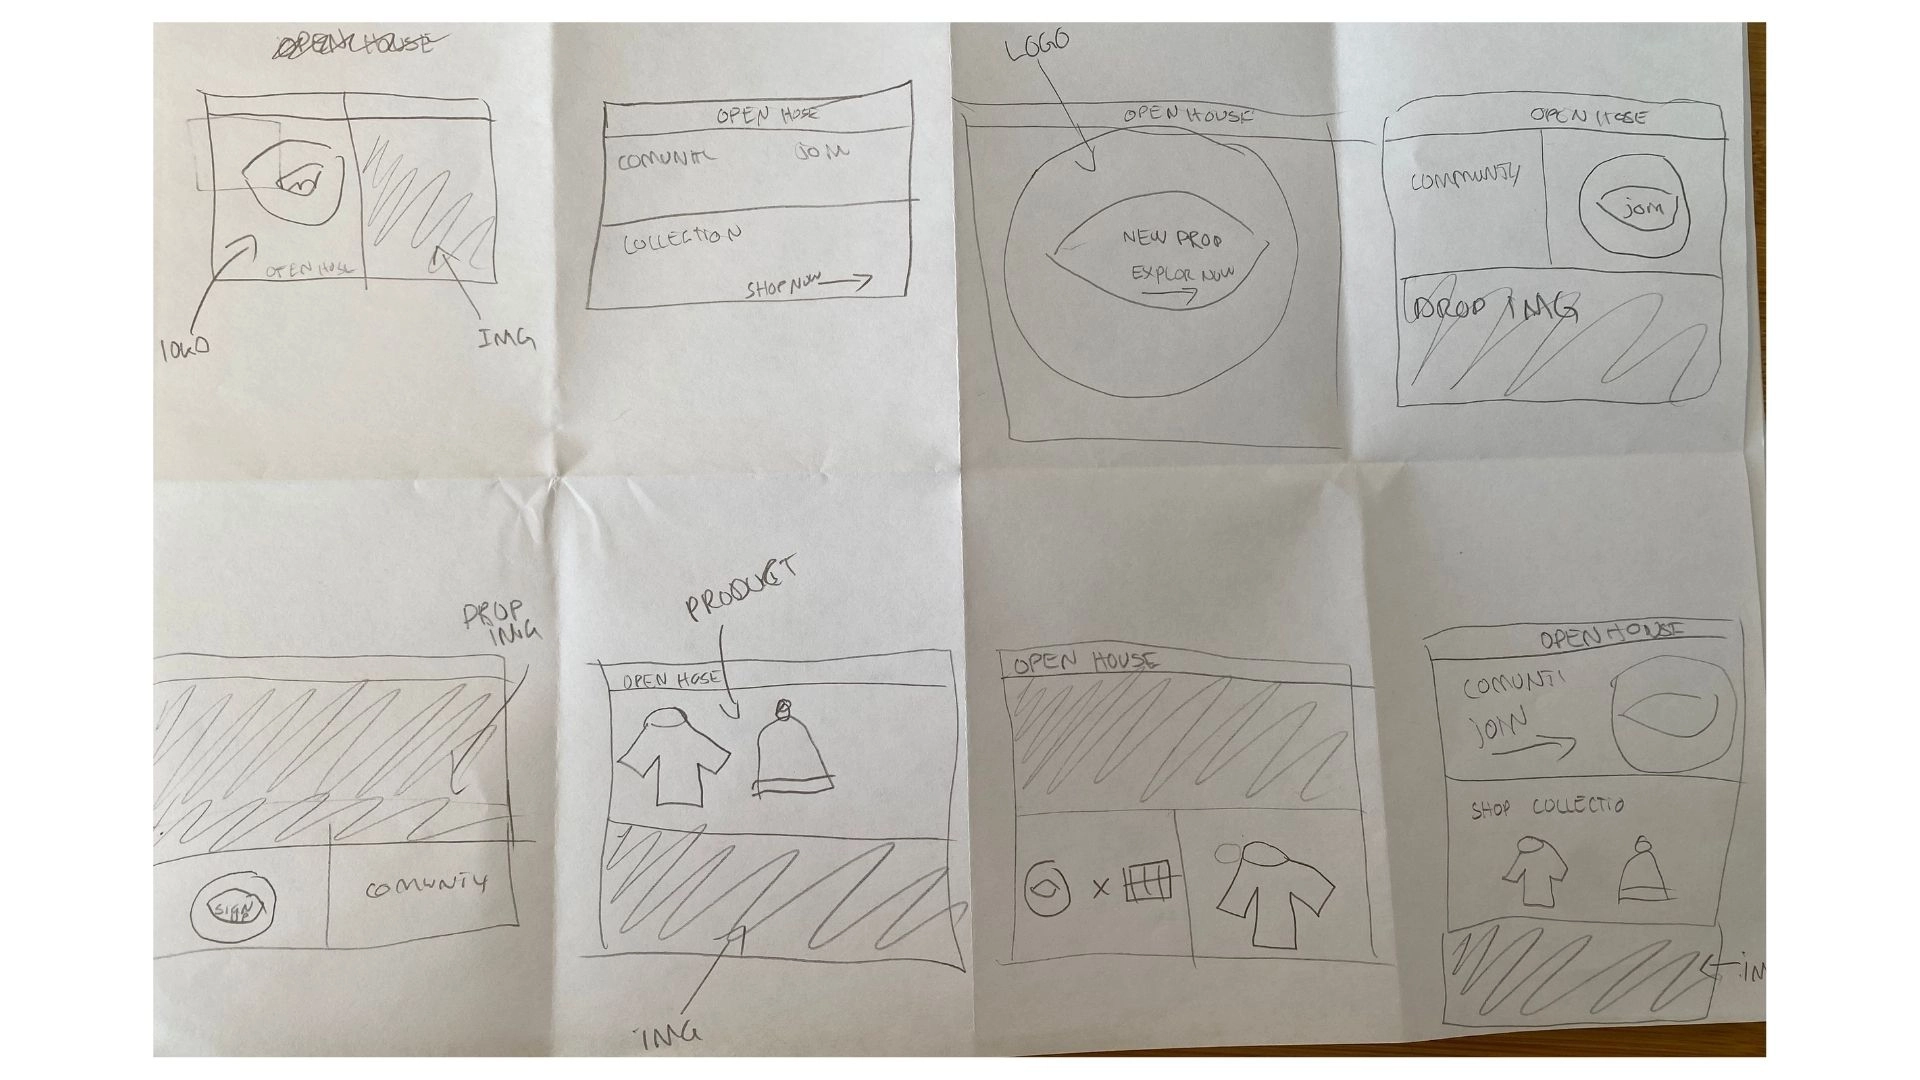 OPEN HOUSE
OPEN HOSE
LOGO
IMG
OPEN HOSE
COMUNITI
JOIN
COLLECTION
SHOP NOW
LOGO
OPEN HOUSE
NEW DROP
EXPLOR NOW
OPEN HOSE
COMMUNITY
JOIN
DROP IMG
DROP
IMG
SIGN
UP
COMUNITY
PRODUCT
OPEN HOSE
IMG
OPEN HOUSE
X
OPEN HOUSE
COMUNITI
JOIN
SHOP COLLECTIO